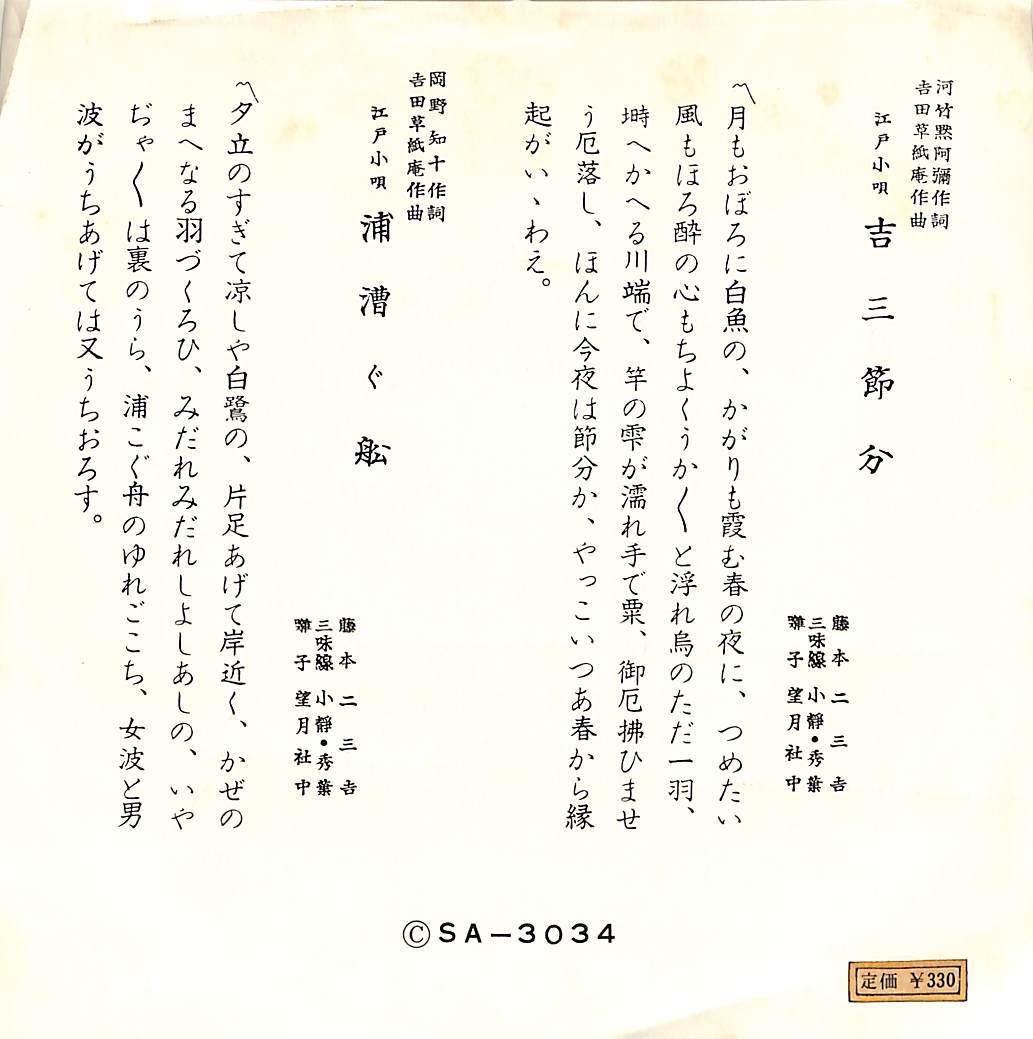 河竹黙阿彌作詞
吉田草紙庵作曲
江戸小唄 吉三節分
藤本二三吉
三味線 小静・秀葉
囃子 望月社中
〽月もおぼろに白魚の、かがりも霞む春の夜に、つめたい
風もほろ酔の心もちよくうか〱と浮れ烏のただ一羽、
塒へかへる川端で、竿の雫が濡れ手で粟、御厄拂ひませ
う厄落し、ほんに今夜は節分か、やっこいつあ春から縁
起がいゝわえ。
岡野知十作詞
吉田草紙庵作曲
江戸小唄 浦漕ぐ舩
藤本二三吉
三味線 小静・秀葉
囃子 望月社中
〽夕立のすぎて凉しや白鷺の、片足あげて岸近く、かぜの
まへなる羽づくろひ、みだれみだれしよしあしの、いや
ぢゃ〱は裏のうら、浦こぐ舟のゆれごこち、女波と男
波がうちあげては又うちおろす。
ⒸSA-3034
定価 ¥330